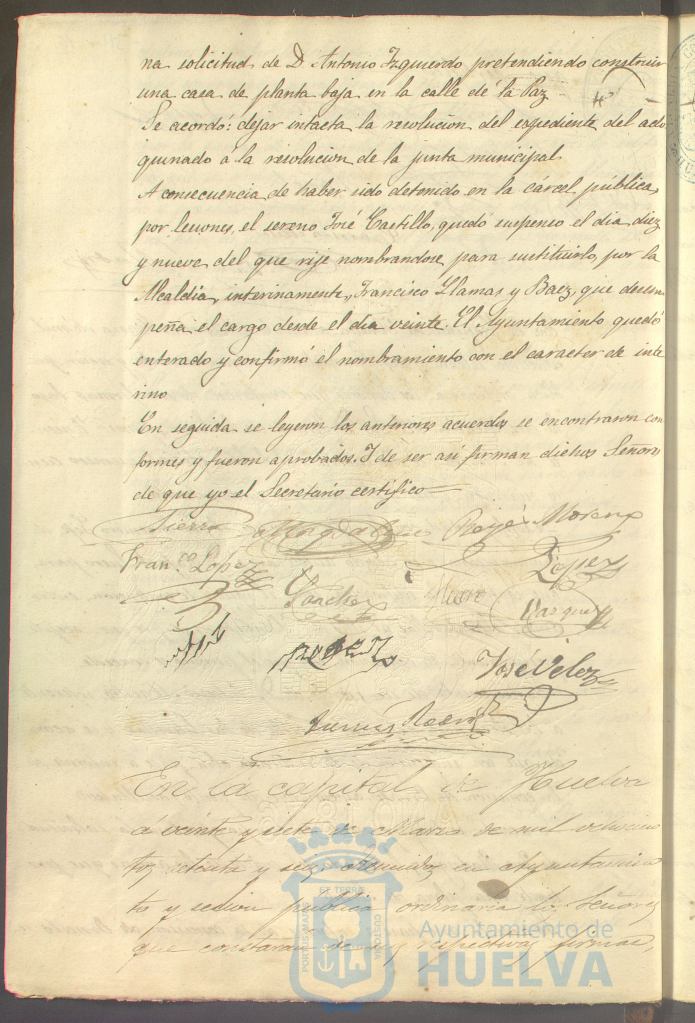 na solicitud de D Antonio Izquerdo pretendiendo construir
una casa de planta baja en la calle de la Paz
Se acordó: dejar intacta la resolucion del espediente del ado
quinado á la resolucion de la junta municipal
A consecuencia de haber sido detenido en la cárcel pública,
por lesiones, el sereno José Castillo, quedó suspenso el dia diez
y nueve del que rije nombrandose, para sustituirlo, por la
Alcaldia, interinamente, Francisco Llamas y Baez, que desem
peña el cargo desde el dia veinte. El Ayuntamiento quedó
enterado y confirmó el nombramiento con el caracter de inte
rino
En seguida se leyeron los anteriores acuerdos se encontraron con
formes y fueron aprobados. I de ser asi firman dichos Señores
de que yo el Secretario certifico
Sierra Rojas Moreno
Fran.co Lopez Sanchez Lopez
Vazquez
José Velez
En la capital de Huelva
á veinte y siete de Marzo de mil ochocien
tos setenta y seis reunidos en Ayuntamien
to y sesion pública ordinaria los Señores
que constaran de sus respectivas firmas,
PORTUS MARIS
ET TERRE
CUSTODIA
Ayuntamiento de
HUELVA